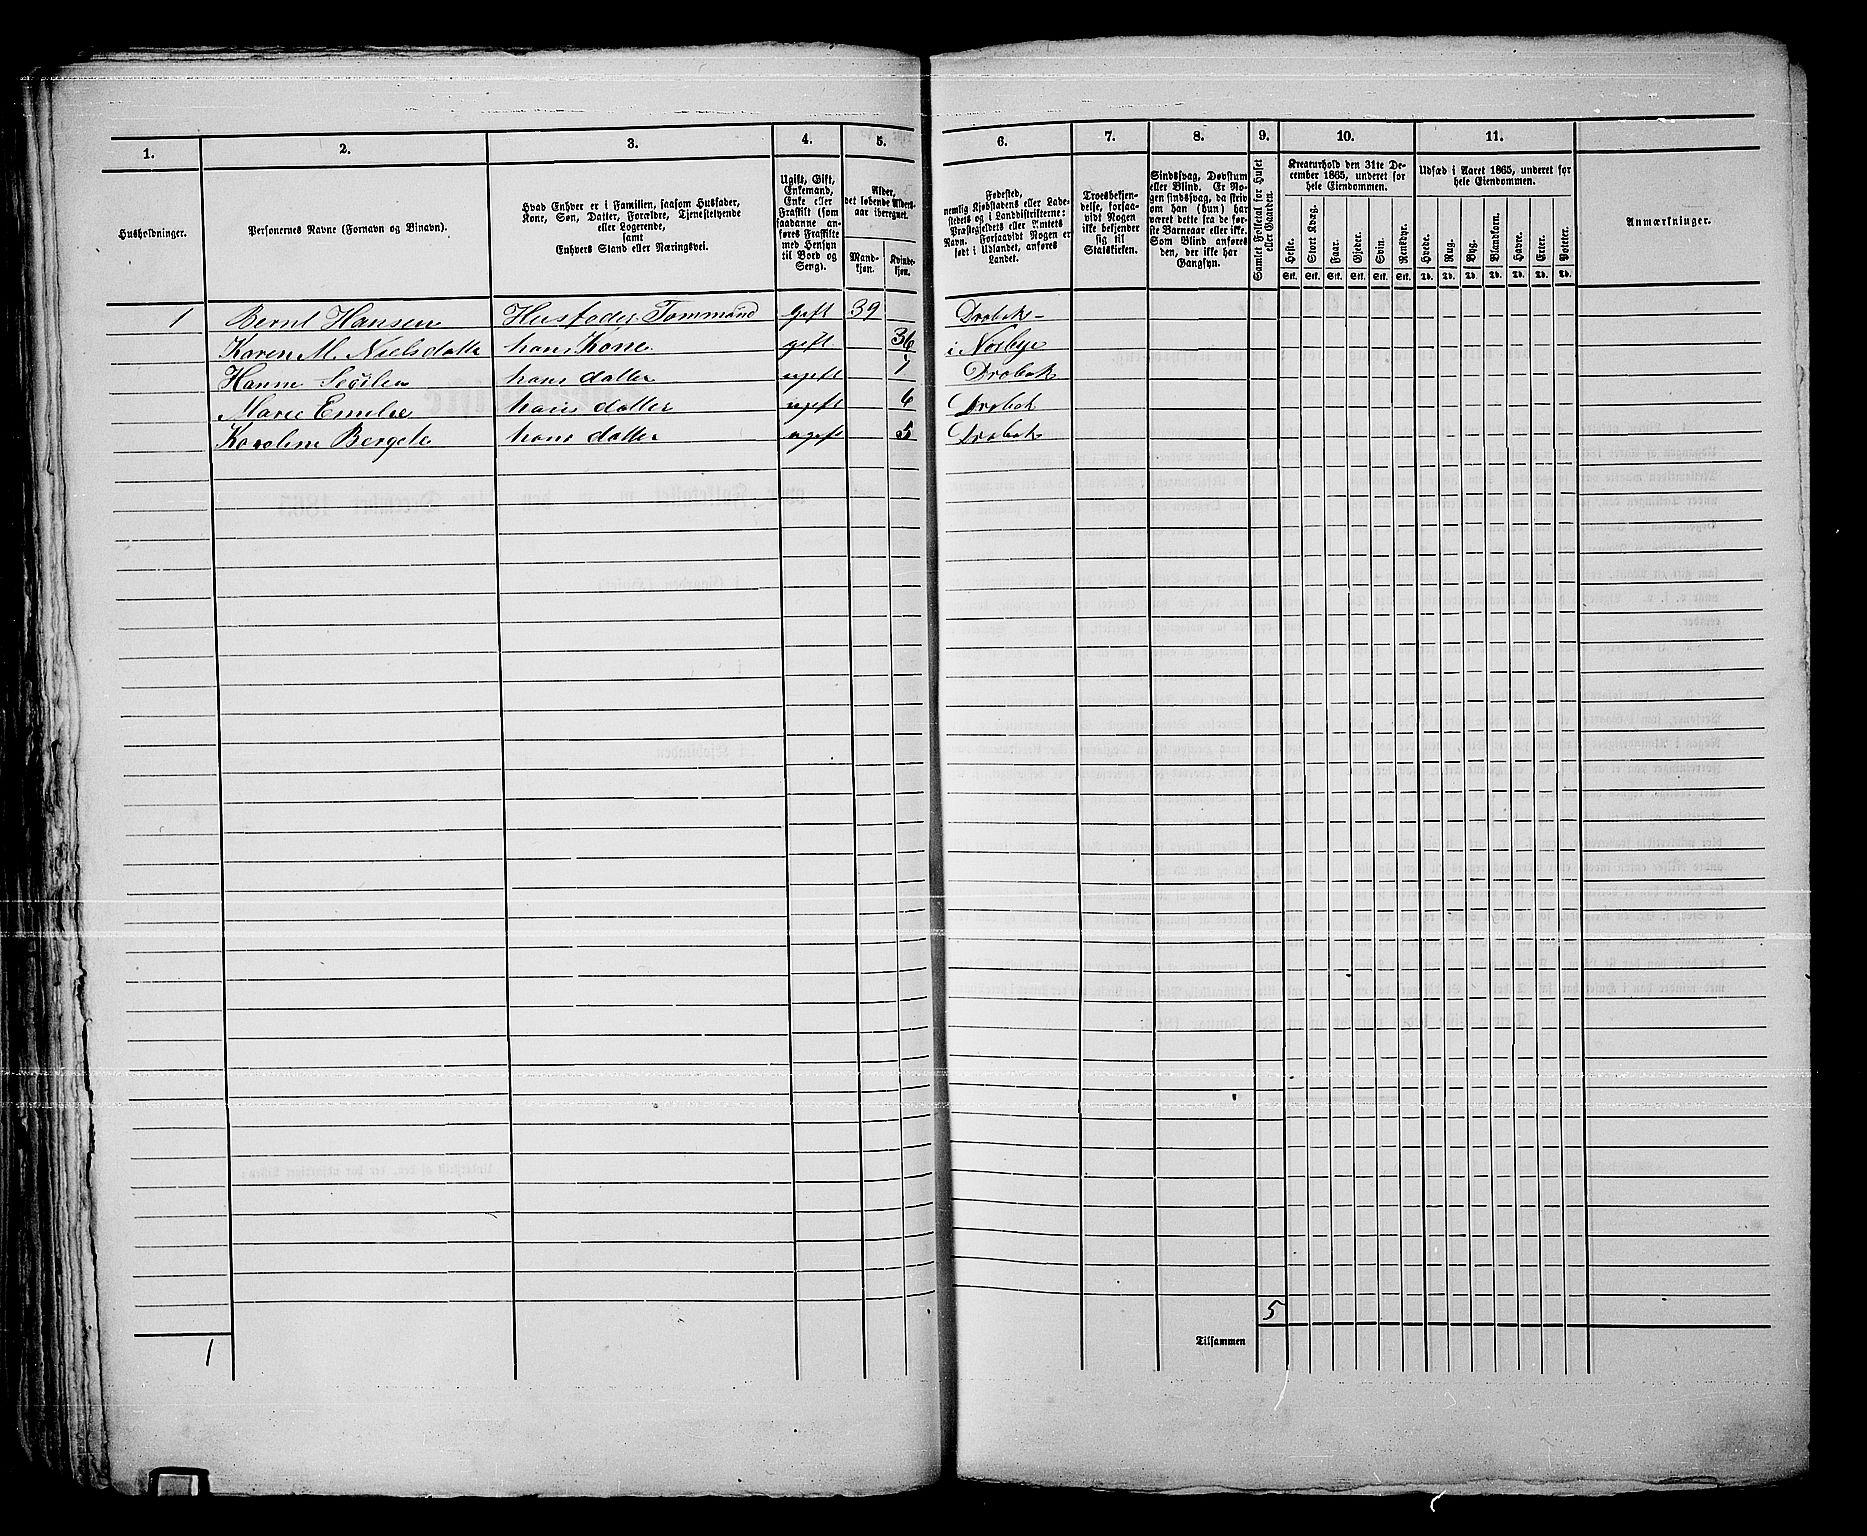 1. 2. 3. 4. 5. 6. 7. 8. 9. 10. 11.
Husholdninger.
Personernes Navne (Fornavn og Binavn).
Hvad Enhver er i Familien, saasom Husfader,
Kone, Søn, Datter, Forældre, Tjenestetyende
eller Logerende,
samt
Enhvers Stand eller Næringsvei.
Ugift, Gift,
Enkemand,
Enke eller
Fraskilt (som
saadanne an-
føres Fraskilte
med Hensyn
til Bord og
Seng).
Alder,
det løbende Alders-
aar iberegnet.
Mand-
kjøn.
Kvinde-
kjøn.
Fødested,
nemlig Kjøbstadens eller Lade-
stedets og i Landdistrikterne:
Præstegjeldets eller Amtets
Navn. Forsaavidt Nogen er
født i Udlandet, anføres
Landet.
Troesbekjen-
delse, forsaa-
vidt Nogen
ikke bekjender
sig til
Statskirken.
Sindssvag, Døvstum
eller Blind. Er No-
gen sindssvag, da skrives
om han (hun) har
været dette fra de før-
ste Barneaar eller ikke.
Som Blind anføres
den, der ikke har
Gangsyn.
Samlet Folketal for Huset
eller Gaarden.
Kreaturhold den 31te De-
cember 1865, underet for
hele Eiendommen.
Heste. Stort Kvæg. Faar. Gjeder. Svin. Rensdyr.
Stk. Stk. Stk. Stk. Stk. Stk.
Udsæd i Aaret 1865, underet for
hele Eiendommen.
Hvede. Rug. Byg. Blandkorn. Havre. Erter. Poteter.
Td. Td. Td. Td. Td. Td. Td.
Anmærkninger.
1 Bernt Hansen Husfader Tømmand gift 39 Drøbak
Karen M. Nielsdatter hans Kone gift 36 i Nesbye
Hanne hans datter ugift 7 Drøbak
Marie Emilie hans datter ugift 6 Drøbak
Karoline Bergete hans datter ugift 5 Drøbak
5
Tilsammen
1